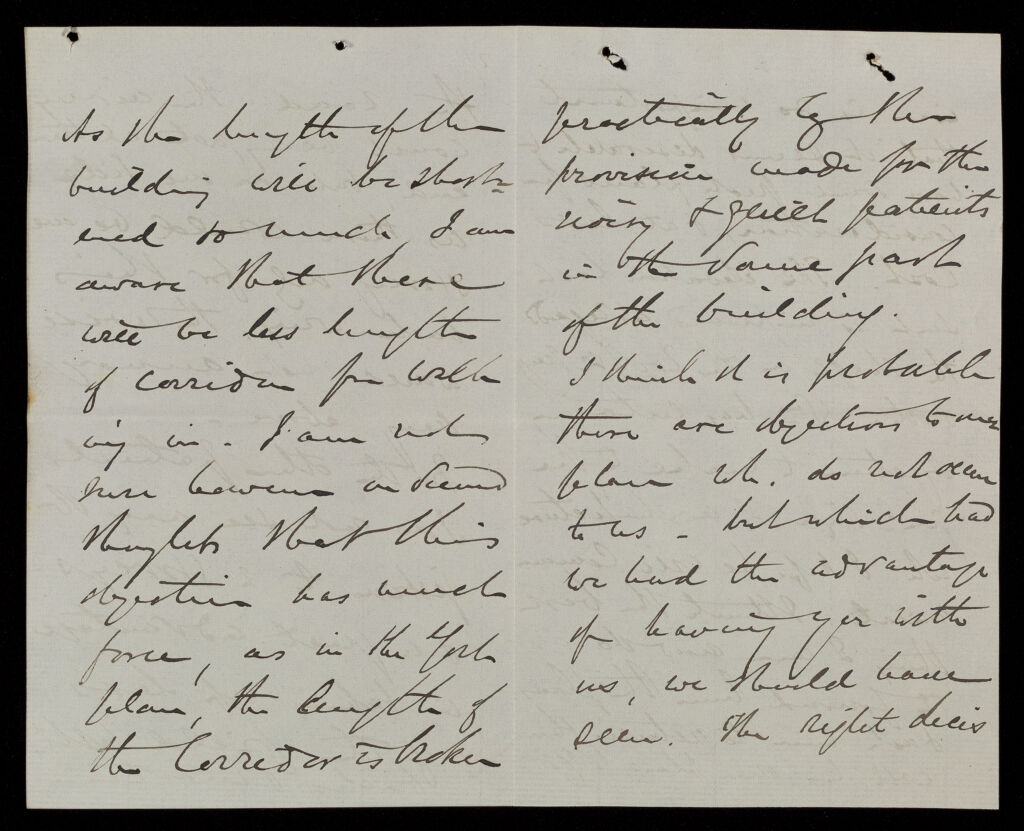 As the length of the
building will be short=
ened so much, I am
aware that there
will be less length
of corridor for walk
ing in. I am not
sure however on second
thoughts that this
objection has much
force, as in the York
plan, the length of
the Corridor is broken
practically by the
provision made for the
noisy & quiet patients
in the same part
of the building.
I think it is probable
there are objections to our
plan wh. do not occur
to us - but which had
we had the advantage
of having you with
us, we should have
seen. The right decis